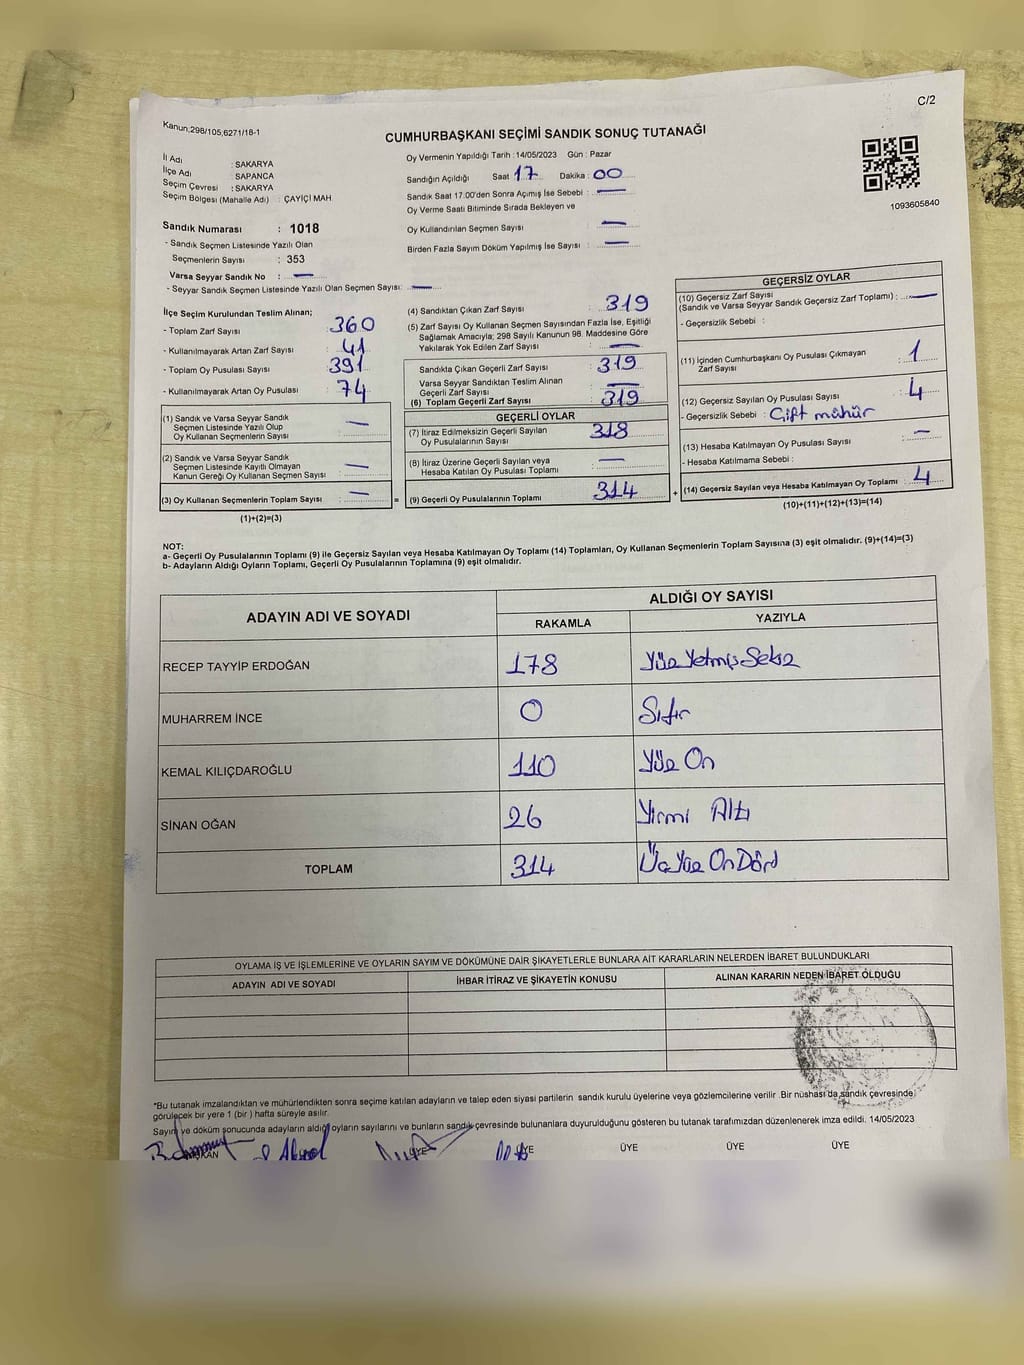 C/2
Kanun;298/105,6271/18-1
CUMHURBAŞKANI SEÇİMİ SANDIK SONUÇ TUTANAĞI
İl Adı : SAKARYA
İlçe Adı : SAPANCA
Seçim Çevresi : SAKARYA
Seçim Bölgesi (Mahalle Adı) : ÇAYİÇİ MAH.
Oy Vermenin Yapıldığı Tarih :14/05/2023 Gün : Pazar
Sandığın Açıldığı Saat 17 Dakika : 00
Sandık Saat 17.00'den Sonra Açımış İse Sebebi : —
Oy Verme Saati Bitiminde Sırada Bekleyen ve
Oy Kullandırılan Seçmen Sayısı : —
Birden Fazla Sayım Döküm Yapılmış İse Sayısı : —
1093605840
Sandık Numarası : 1018
- Sandık Seçmen Listesinde Yazılı Olan
Seçmenlerin Sayısı : 353
Varsa Seyyar Sandık No : —
- Seyyar Sandık Seçmen Listesinde Yazılı Olan Seçmen Sayısı: —
İlçe Seçim Kurulundan Teslim Alınan;
- Toplam Zarf Sayısı 360
- Kullanılmayarak Artan Zarf Sayısı 41
- Toplam Oy Pusulası Sayısı 391
- Kullanılmayarak Artan Oy Pusulası 74
(1) Sandık ve Varsa Seyyar Sandık
Seçmen Listesinde Yazılı Olup
Oy Kullanan Seçmenlerin Sayısı —
(2) Sandık ve Varsa Seyyar Sandık
Seçmen Listesinde Kayıtlı Olmayan
Kanun Gereği Oy Kullanan Seçmen Sayısı —
(3) Oy Kullanan Seçmenlerin Toplam Sayısı — =
(1)+(2)=(3)
(4) Sandıktan Çıkan Zarf Sayısı 319
(5) Zarf Sayısı Oy Kullanan Seçmen Sayısından Fazla İse, Eşitliği
Sağlamak Amacıyla; 298 Sayılı Kanunun 98. Maddesine Göre
Yakılarak Yok Edilen Zarf Sayısı —
Sandıkta Çıkan Geçerli Zarf Sayısı 319
Varsa Seyyar Sandıktan Teslim Alınan
Geçerli Zarf Sayısı —
(6) Toplam Geçerli Zarf Sayısı 319
GEÇERLİ OYLAR
(7) İtiraz Edilmeksizin Geçerli Sayılan
Oy Pusulalarının Sayısı 318
(8) İtiraz Üzerine Geçerli Sayılan veya
Hesaba Katılan Oy Pusulası Toplamı —
(9) Geçerli Oy Pusulalarının Toplamı 314 +
GEÇERSİZ OYLAR
(10) Geçersiz Zarf Sayısı
(Sandık ve Varsa Seyyar Sandık Geçersiz Zarf Toplamı) : —
- Geçersizlik Sebebi :
(11) İçinden Cumhurbaşkanı Oy Pusulası Çıkmayan
Zarf Sayısı 1
(12) Geçersiz Sayılan Oy Pusulası Sayısı 4
- Geçersizlik Sebebi : Çift mühür
(13) Hesaba Katılmayan Oy Pusulası Sayısı —
- Hesaba Katılmama Sebebi :
(14) Geçersiz Sayılan veya Hesaba Katılmayan Oy Toplamı 4
(10)+(11)+(12)+(13)=(14)
NOT:
a- Geçerli Oy Pusulalarının Toplamı (9) ile Geçersiz Sayılan veya Hesaba Katılmayan Oy Toplamı (14) Toplamları, Oy Kullanan Seçmenlerin Toplam Sayısına (3) eşit olmalıdır. (9)+(14)=(3)
b- Adayların Aldığı Oyların Toplamı, Geçerli Oy Pusulalarının Toplamına (9) eşit olmalıdır.
ADAYIN ADI VE SOYADI ALDIĞI OY SAYISI
RAKAMLA YAZIYLA
RECEP TAYYİP ERDOĞAN 178 Yüz Yetmiş Sekiz
MUHARREM İNCE 0 Sıfır
KEMAL KILIÇDAROĞLU 110 Yüz On
SİNAN OĞAN 26 Yirmi Altı
TOPLAM 314 Üç Yüz On Dörd
OYLAMA İŞ VE İŞLEMLERİNE VE OYLARIN SAYIM VE DÖKÜMÜNE DAİR ŞİKAYETLERLE BUNLARA AİT KARARLARIN NELERDEN İBARET BULUNDUKLARI
ADAYIN ADI VE SOYADI İHBAR İTİRAZ VE ŞİKAYETİN KONUSU ALINAN KARARIN NEDEN İBARET OLDUĞU
*Bu tutanak imzalandıktan ve mühürlendikten sonra seçime katılan adayların ve talep eden siyasi partilerin sandık kurulu üyelerine veya gözlemcilerine verilir. Bir nüshası da sandık çevresinde
görülecek bir yere 1 (bir ) hafta süreyle asılır.
Sayım ve döküm sonucunda adayların aldığı oyların sayılarını ve bunların sandık çevresinde bulunanlara duyurulduğunu gösteren bu tutanak tarafımızdan düzenlenerek imza edildi. 14/05/2023
ÜYE ÜYE ÜYE ÜYE